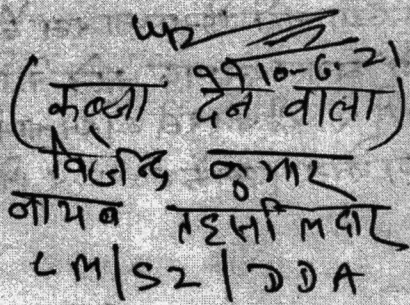 10-6-21
(कब्जा देने वाला)
विजेन्द्र कुमार
नायब तहसीलदार
LM/SZ/DDA